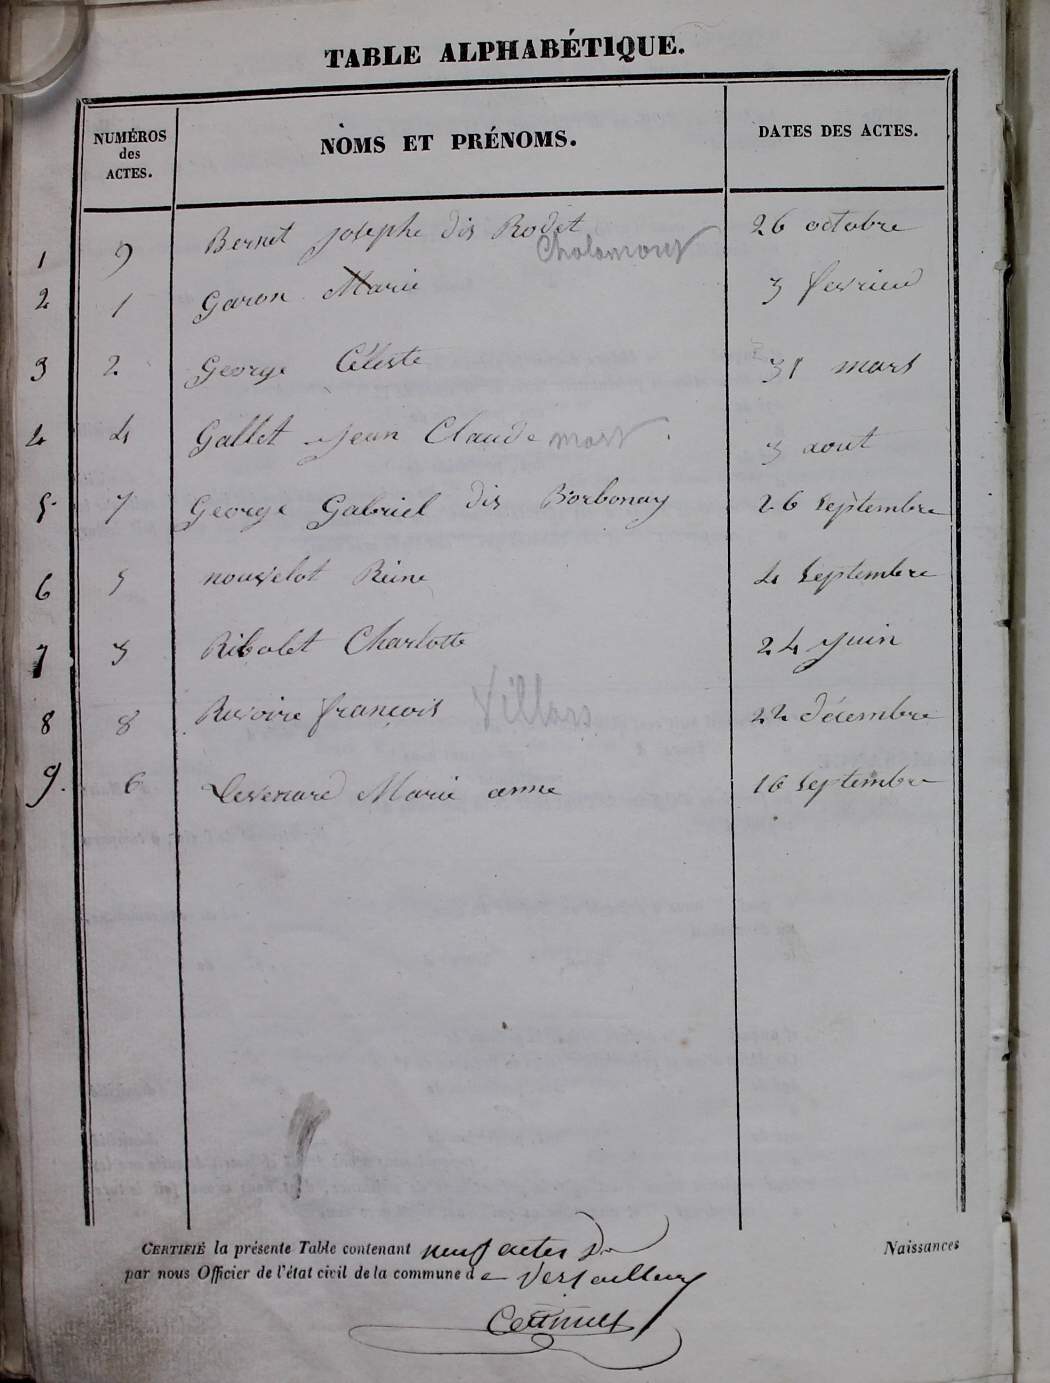 TABLE ALPHABÉTIQUE.
NUMÉROS des ACTES. NOMS ET PRÉNOMS. DATES DES ACTES.
1 9 Bernet josephe dit Rodet 26 octobre
Chalamont
2 1 Garon Marie 3 fevrier
3 2 George Céleste 31 mars
4 4 Gallet jean Claude mort 3 aout
5 7 George Gabriel dit Borbonay 26 septembre
6 5 nouvelot Reine 4 septembre
7 3 Ribolet Charlotte 24 juin
8 8 Revoire françois Villars 22 décembre
9. 6 Marie anne 16 septembre
CERTIFIÉ la présente Table contenant neuf actes de Naissances
par nous Officier de l'état civil de la commune de Versailleux